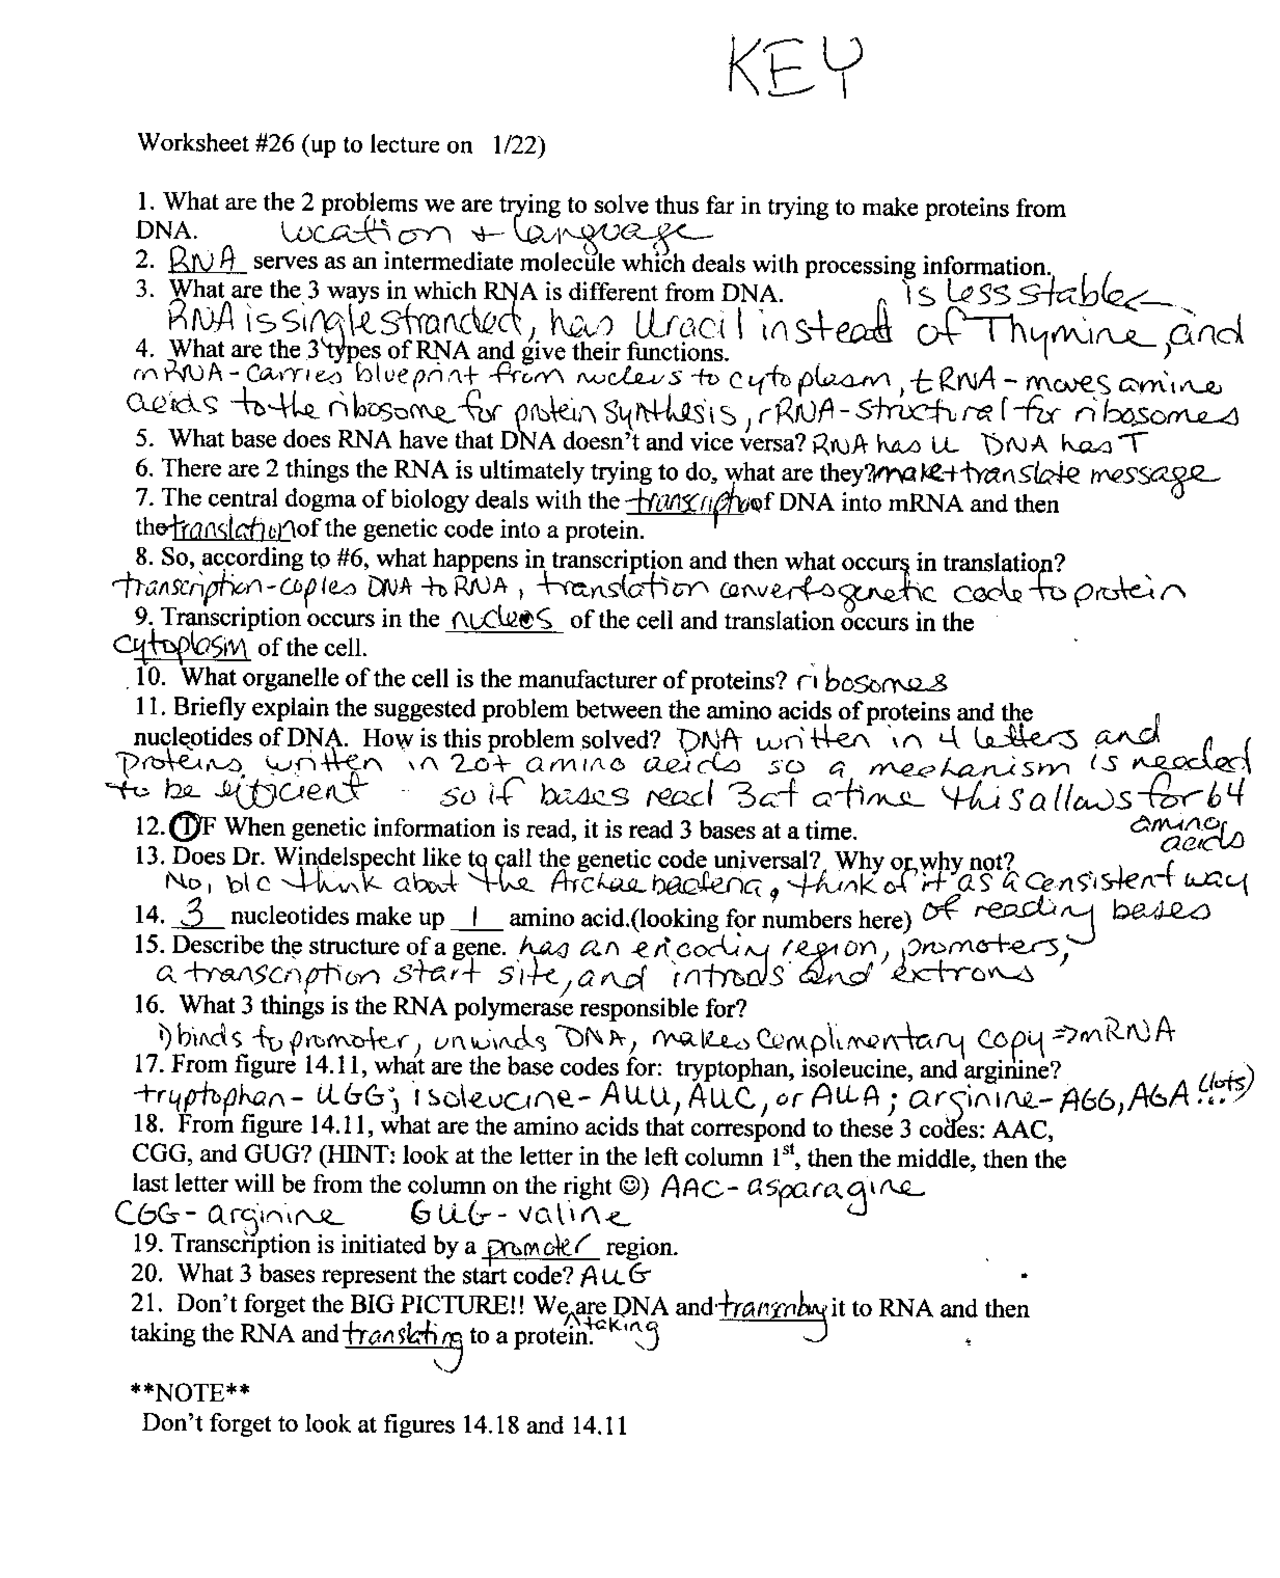 KEY
Worksheet #26 (up to lecture on 1/22)
1. What are the 2 problems we are trying to solve thus far in trying to make proteins from
DNA. location + language
2. RNA serves as an intermediate molecule which deals with processing information.
3. What are the 3 ways in which RNA is different from DNA. is less stable
RNA is single stranded, has Uracil instead of Thymine, and
4. What are the 3 types of RNA and give their functions.
mRNA - carries blueprint from nucleus to cytoplasm, tRNA - moves amine
acids to the ribosome for protein synthesis, rRNA - structural for ribosomes
5. What base does RNA have that DNA doesn't and vice versa? RNA has U DNA has T
6. There are 2 things the RNA is ultimately trying to do, what are they? make + translate message
7. The central dogma of biology deals with the transcription of DNA into mRNA and then
the translation of the genetic code into a protein.
8. So, according to #6, what happens in transcription and then what occurs in translation?
transcription - copies DNA to RNA, translation converts genetic code to protein
9. Transcription occurs in the nucleus of the cell and translation occurs in the
cytoplasm of the cell.
10. What organelle of the cell is the manufacturer of proteins? ribosomes
11. Briefly explain the suggested problem between the amino acids of proteins and the
nucleotides of DNA. How is this problem solved? DNA written in 4 letters and
proteins written in 20+ amino acids so a mechanism is needed
to be efficient so if bases read 3 at a time this allows for 64
amino
acids
12. T F When genetic information is read, it is read 3 bases at a time.
13. Does Dr. Windelspecht like to call the genetic code universal? Why or why not?
No, b/c think about the Archaebacteria, think of it as a consistent way
14. 3 nucleotides make up 1 amino acid.(looking for numbers here) of reading bases
15. Describe the structure of a gene. has an encoding region, promoters,
a transcription start site, and introds and extrons
16. What 3 things is the RNA polymerase responsible for?
1) binds to promoter, unwinds DNA, makes complimentary copy => mRNA
17. From figure 14.11, what are the base codes for: tryptophan, isoleucine, and arginine?
tryptophan - UGG; isoleucine - AUU, AUC, or AUA; arginine - AGG, AGA ... (lots)
18. From figure 14.11, what are the amino acids that correspond to these 3 codes: AAC,
CGG, and GUG? (HINT: look at the letter in the left column 1st, then the middle, then the
last letter will be from the column on the right ☺) AAC - asparagine
CGG - arginine GUG - valine
19. Transcription is initiated by a promoter region.
20. What 3 bases represent the start code? AUG
21. Don't forget the BIG PICTURE!! We are DNA and transcribing it to RNA and then
taking the RNA and translating to a protein. ^taking
**NOTE**
Don't forget to look at figures 14.18 and 14.11